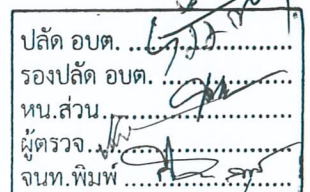 ปลัด อบต. ....................
รองปลัด อบต. ....................
หน.ส่วน....................
ผู้ตรวจ....................
จนท.พิมพ์ ....................